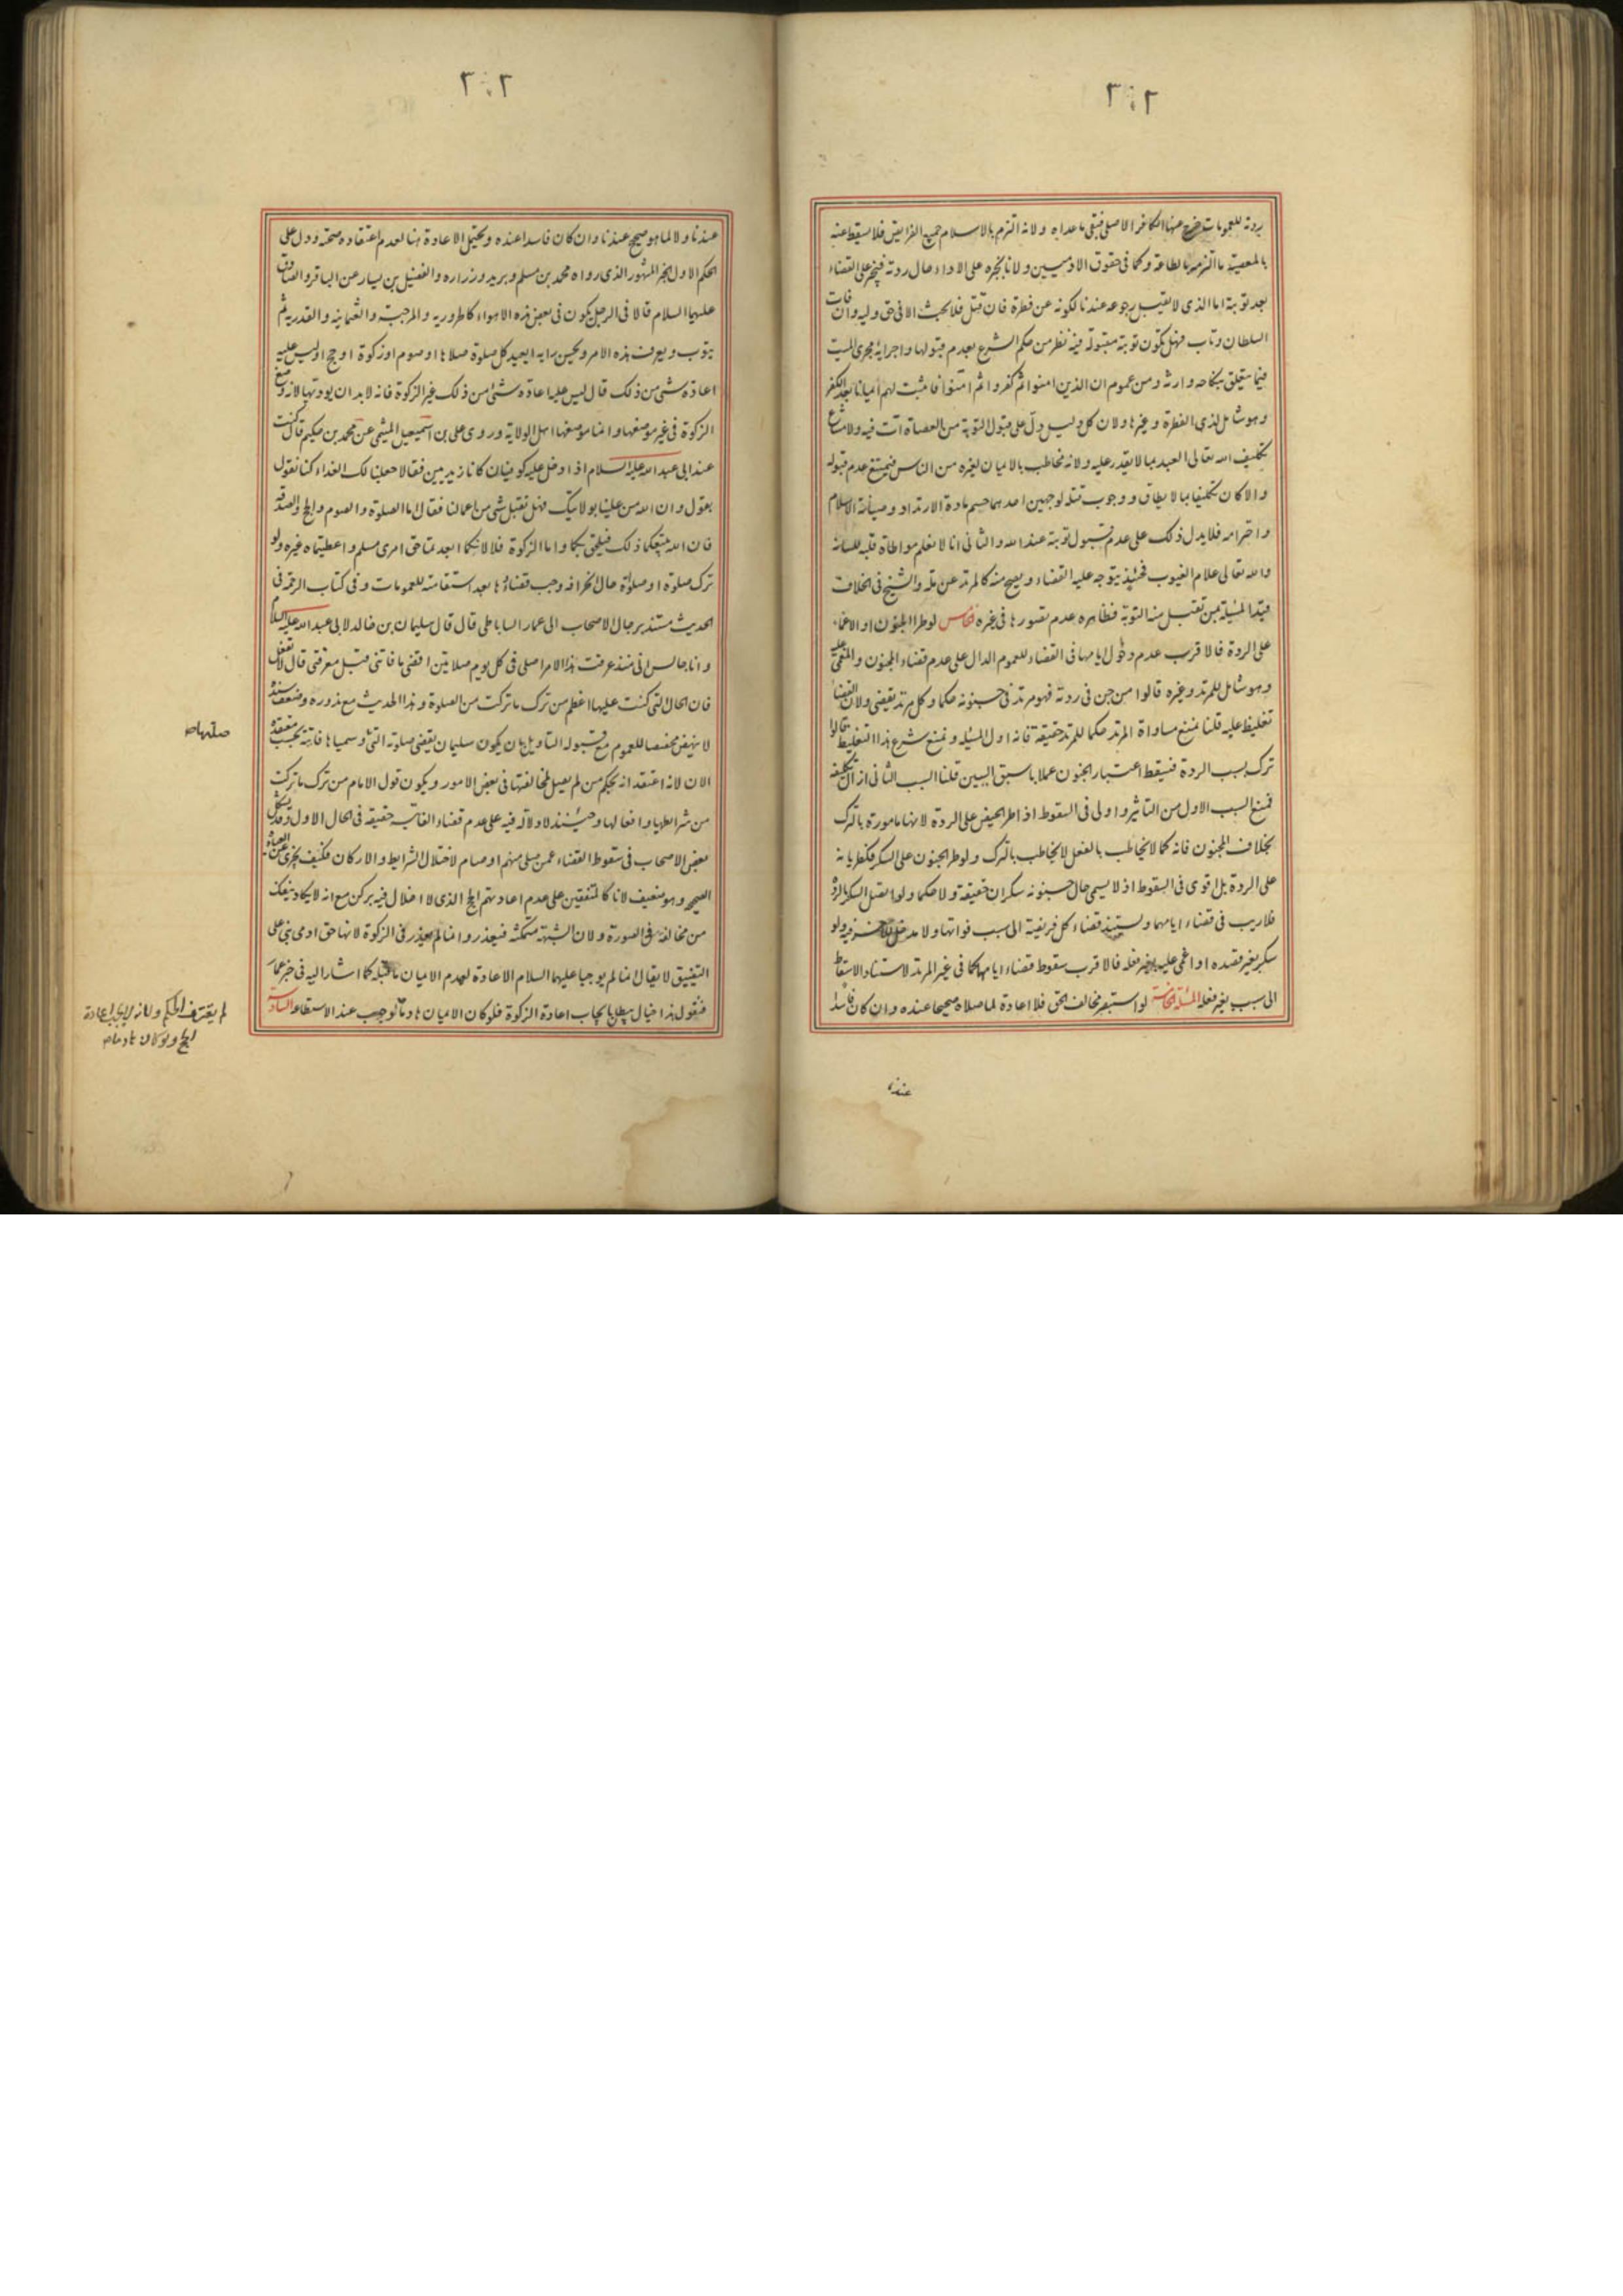 ٢٠٢
ردته للعمومات خرج عنها الكافر الاصلى فبقى ما عداه ولانه التزم بالاسلام جميع الفرايض فلا يسقط عنه
بالمعصية ما التزمه بالطاعة وكما فى حقوق الادميين ولانا نجبره على الاداء حال ردته فيجبر على القضاء
بعد توبته اما الذى لا يقبل رجوعه عندنا لكونه عن فطرة فان قتل فلا بحث الا فى حق وليه وان فات
السلطان وتاب فهل تكون توبته مقبولة فيه نظر من حكم الشرع بعدم قبولها واجرائه مجرى الميت
فيما يتعلق بنكاحه وارثه ومن عموم ان الذين امنوا ثم كفروا ثم امنوا فاثبت لهم ايمانا بعد الكفر
وهو شامل لذى الفطرة وغيرها ولان كل دليل دل على قبول التوبة من العصاة ات فيه ولامتناع
تكليف الله تعالى العبد بما لا يقدر عليه ولانه مخاطب بالايمان لغيره من الناس فيمتنع عدم قبوله
والا كان تكليفا بما لا يطاق ووجوب قتله لوجهين احدهما حسم مادة الارتداد وصيانة الاسلام
واحترامه فلا يدل ذلك على عدم قبول توبته عند الله والثانى انا لا نعلم مواطاة قلبه للسانه
والله تعالى علام الغيوب فحينئذ يتوجه عليه القضاء ويصح منه كالمرتد عن ملة والشيخ فى الخلاف
قيد المسئلة بمن تقبل منه التوبة فظاهره عدم تصورها فى غيره خامس لو طرا الجنون او الاغماء
على الردة فالاقرب عدم دخول ايامهما فى القضاء للعموم الدال على عدم قضاء المجنون والمغمى عليه
وهو شامل للمرتد وغيره قالوا من جن فى ردته فهو مرتد فى جنونه حكما وكل مرتد يقضى ولان القضاء
تغليظ عليه قلنا نمنع مساواة المرتد حكما للمرتد حقيقة فانه اول المسئلة ونمنع شرع هذا التغليظ قالوا
ترك بسبب الردة فيسقط اعتبار الجنون عملا باسبق السببين قلنا السبب الثانى ازال تكليفه
فمنع السبب الاول من التاثير واولى فى السقوط اذا طرا الحيض على الردة لانها مامورة بالترك
بخلاف المجنون فانه كما لا يخاطب بالفعل لا يخاطب بالترك ولو طرا الجنون على السكر فكطريانه
على الردة بل اقوى فى السقوط اذ لا يسمى حال جنونه سكران حقيقة ولا حكما ولو اتصل السكر بالردة
فلا ريب فى قضاء ايامهما ويستند قضاء كل فريضة الى سبب فواتها ولا مدخل للاخر فيه ولو
سكر بغير قصده او اغمى عليه لا بفعله فالاقرب سقوط قضاء ايامهما كما فى غير المرتد لاستناد الاسقاط
الى سبب بغير فعله المسئلة الخامسة لو استبصر مخالف الحق فلا اعادة لما صلاه صحيحا عنده وان كان فاسدا
عندنا
٢٠٣
عندنا ولا لما هو صحيح عندنا وان كان فاسدا عنده ويحتمل الاعادة هنا لعدم اعتقاده صحته ودل على
الحكم الاول الخبر المشهور الذى رواه محمد بن مسلم وبريد وزراره والفضيل بن يسار عن الباقر والصادق
عليهما السلام قالا فى الرجل يكون فى بعض هذه الاهواء كالحرورية والمرجئة والعثمانية والقدرية ثم
يتوب ويعرف هذه الامر ويحسن رايه ايعيد كل صلوة صلاها او صوم او زكوة او حج او ليس عليه
اعادة شى من ذلك قال ليس عليه اعادة شى من ذلك غير الزكوة فانه لابد ان يوديها لانه وضع
الزكوة فى غير موضعها وانما موضعها اهل الولاية وروى على بن اسمعيل الميثمى عن محمد بن حكيم قال كنت
عند ابى عبد الله عليه السلام اذا دخل عليه كوفيان كانا زيديين فقالا جعلنا لك الفداء كنا نقول
بقول وان الله من علينا بولايتك فهل تقبل شى من اعمالنا فقال اما الصلوة والصوم والحج والصدقة
فان الله يتبعكما ذلك فيلحق بكما واما الزكوة فلا لانكما ابعدتما حق امرى مسلم واعطيتماه غيره ولو
ترك صلوة او صلوة حال انحرافه وجب قضاؤها بعد استقامته للعمومات وفى كتاب الرحمة فى
الحديث مسند برجال الاصحاب الى عمار الساباطى قال قال سليمان بن خالد لابى عبد الله عليه السلام
وانا جالس انى منذ عرفت هذا الامر اصلى فى كل يوم صلاتين اقضى ما فاتنى قبل معرفتى قال لا تفعل
فان الحال التى كنت عليها اعظم من ترك ما تركت من الصلوة وهذا الحديث مع ندوره وضعف سنده
لا ينهض مخصصا للعموم مع قبوله التاويل بان يكون سليمان يقضى صلوته التى وسمياها فائتة بحسب معتقده
الان لانه اعتقد انه بحكم من لم يصل لمخالفتها فى بعض الامور ويكون قول الامام من ترك ما تركت
من شرائطها وافعالها وحينئذ لا دلالة فيه على عدم قضاء الفائتة حقيقة فى الحال الاول وقد يشكل
بعض الاصحاب فى سقوط القضاء عمن صلى منهم او صام لاختلال الشرايط والاركان فكيف يجزى عن العبادة
الصحيحة وهو ضعيف لانا كالمتفقين على عدم اعادتهم الحج الذى لا اخلال فيه بركن مع انه لا يكاد ينفك
من مخالفة فى الصورة ولان الشبهة متمكنة فيعذر وانما لم يعذر فى الزكوة لانها حق ادمى بنى على
التضييق لا يقال انما لم يوجبا عليهما السلام الاعادة لعدم الايمان كما اشار اليه فى خبر عمار
فنقول هذا خيال يبطل بايجاب اعادة الزكوة فلو كان الايمان هادما لوجب عند الاستطاعة السادسة
صلتهاص
لم يفترق الحكم ولانه لا يجب اعادة
الحج ولو كان هادماص